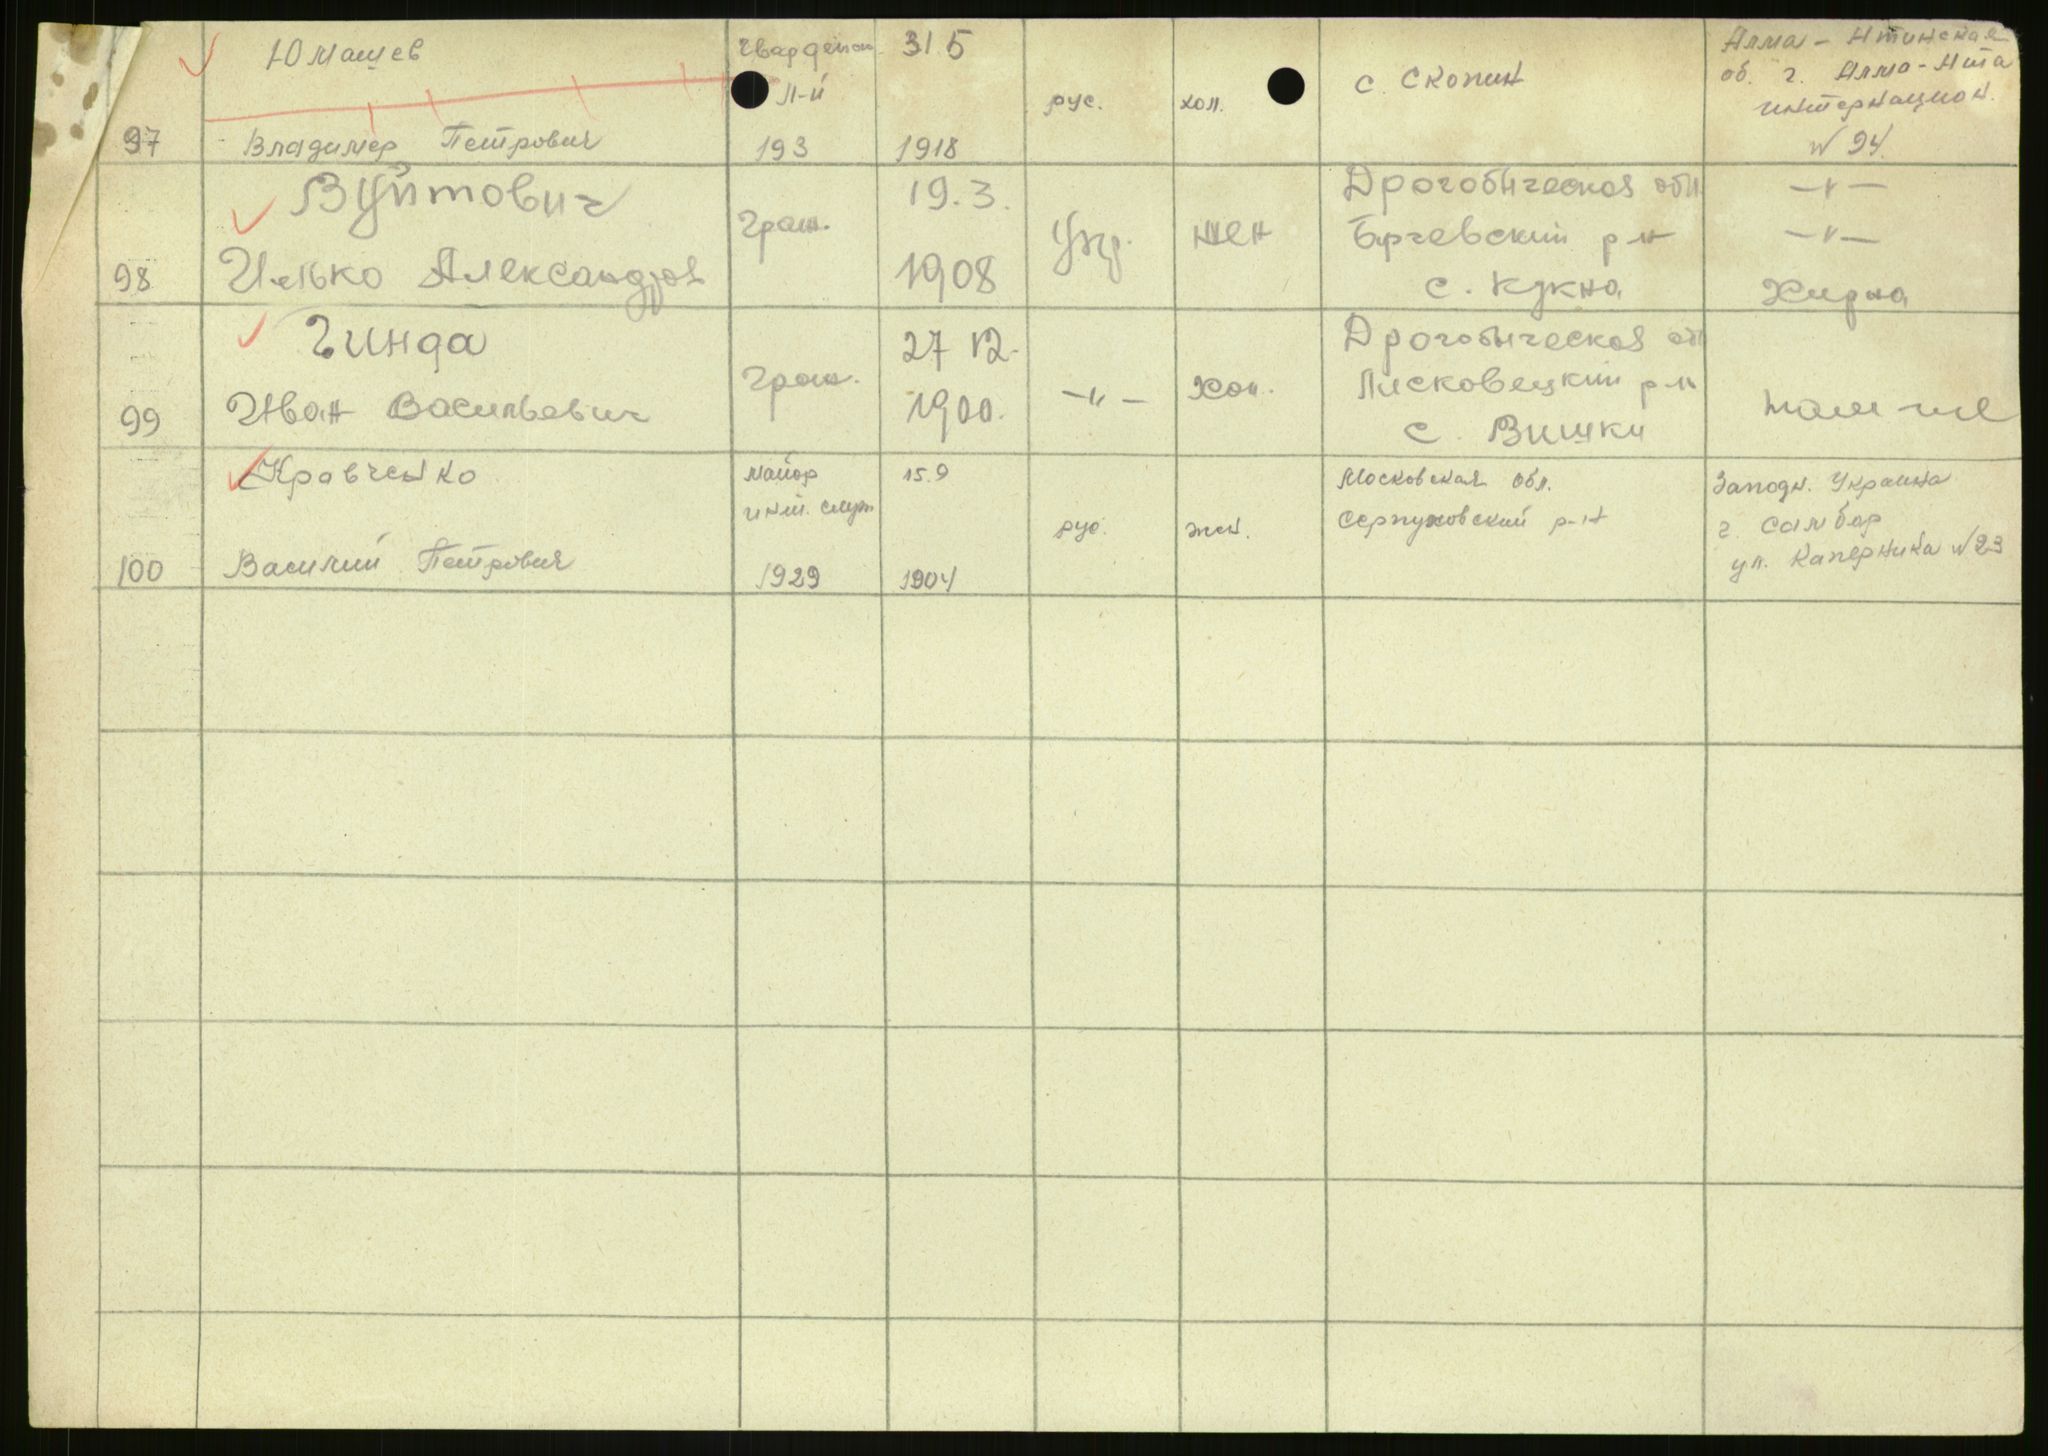 Юмашев
Гвардейск. 31 5
Л-й
193 1918
рус. хол.
с. Скопин
Алма-Атинская
об. г. Алма-Ата
интернацион.
№ 94
97 Владимер Петрович
Вуйтович
98 Илько Александров
Граж.
19.3.
1908
Укр. жен
Дрогобическая обл
р-н
с. Кукна
-"-
-"-
Хирна
Гинда
99 Иван Васильевич
Граж.
27 12.
1900.
-"- Хол.
Дрогобическая об
Лисковецкий р-н
с. Вишки
там-же
Кравченко
100 Василий Петрович
майор
инт. служ
1929
15.9
1904
рус. жен.
Московская обл.
Серпуховский р-н
Западн. Украина
г. Самбор
ул. Каперника №23